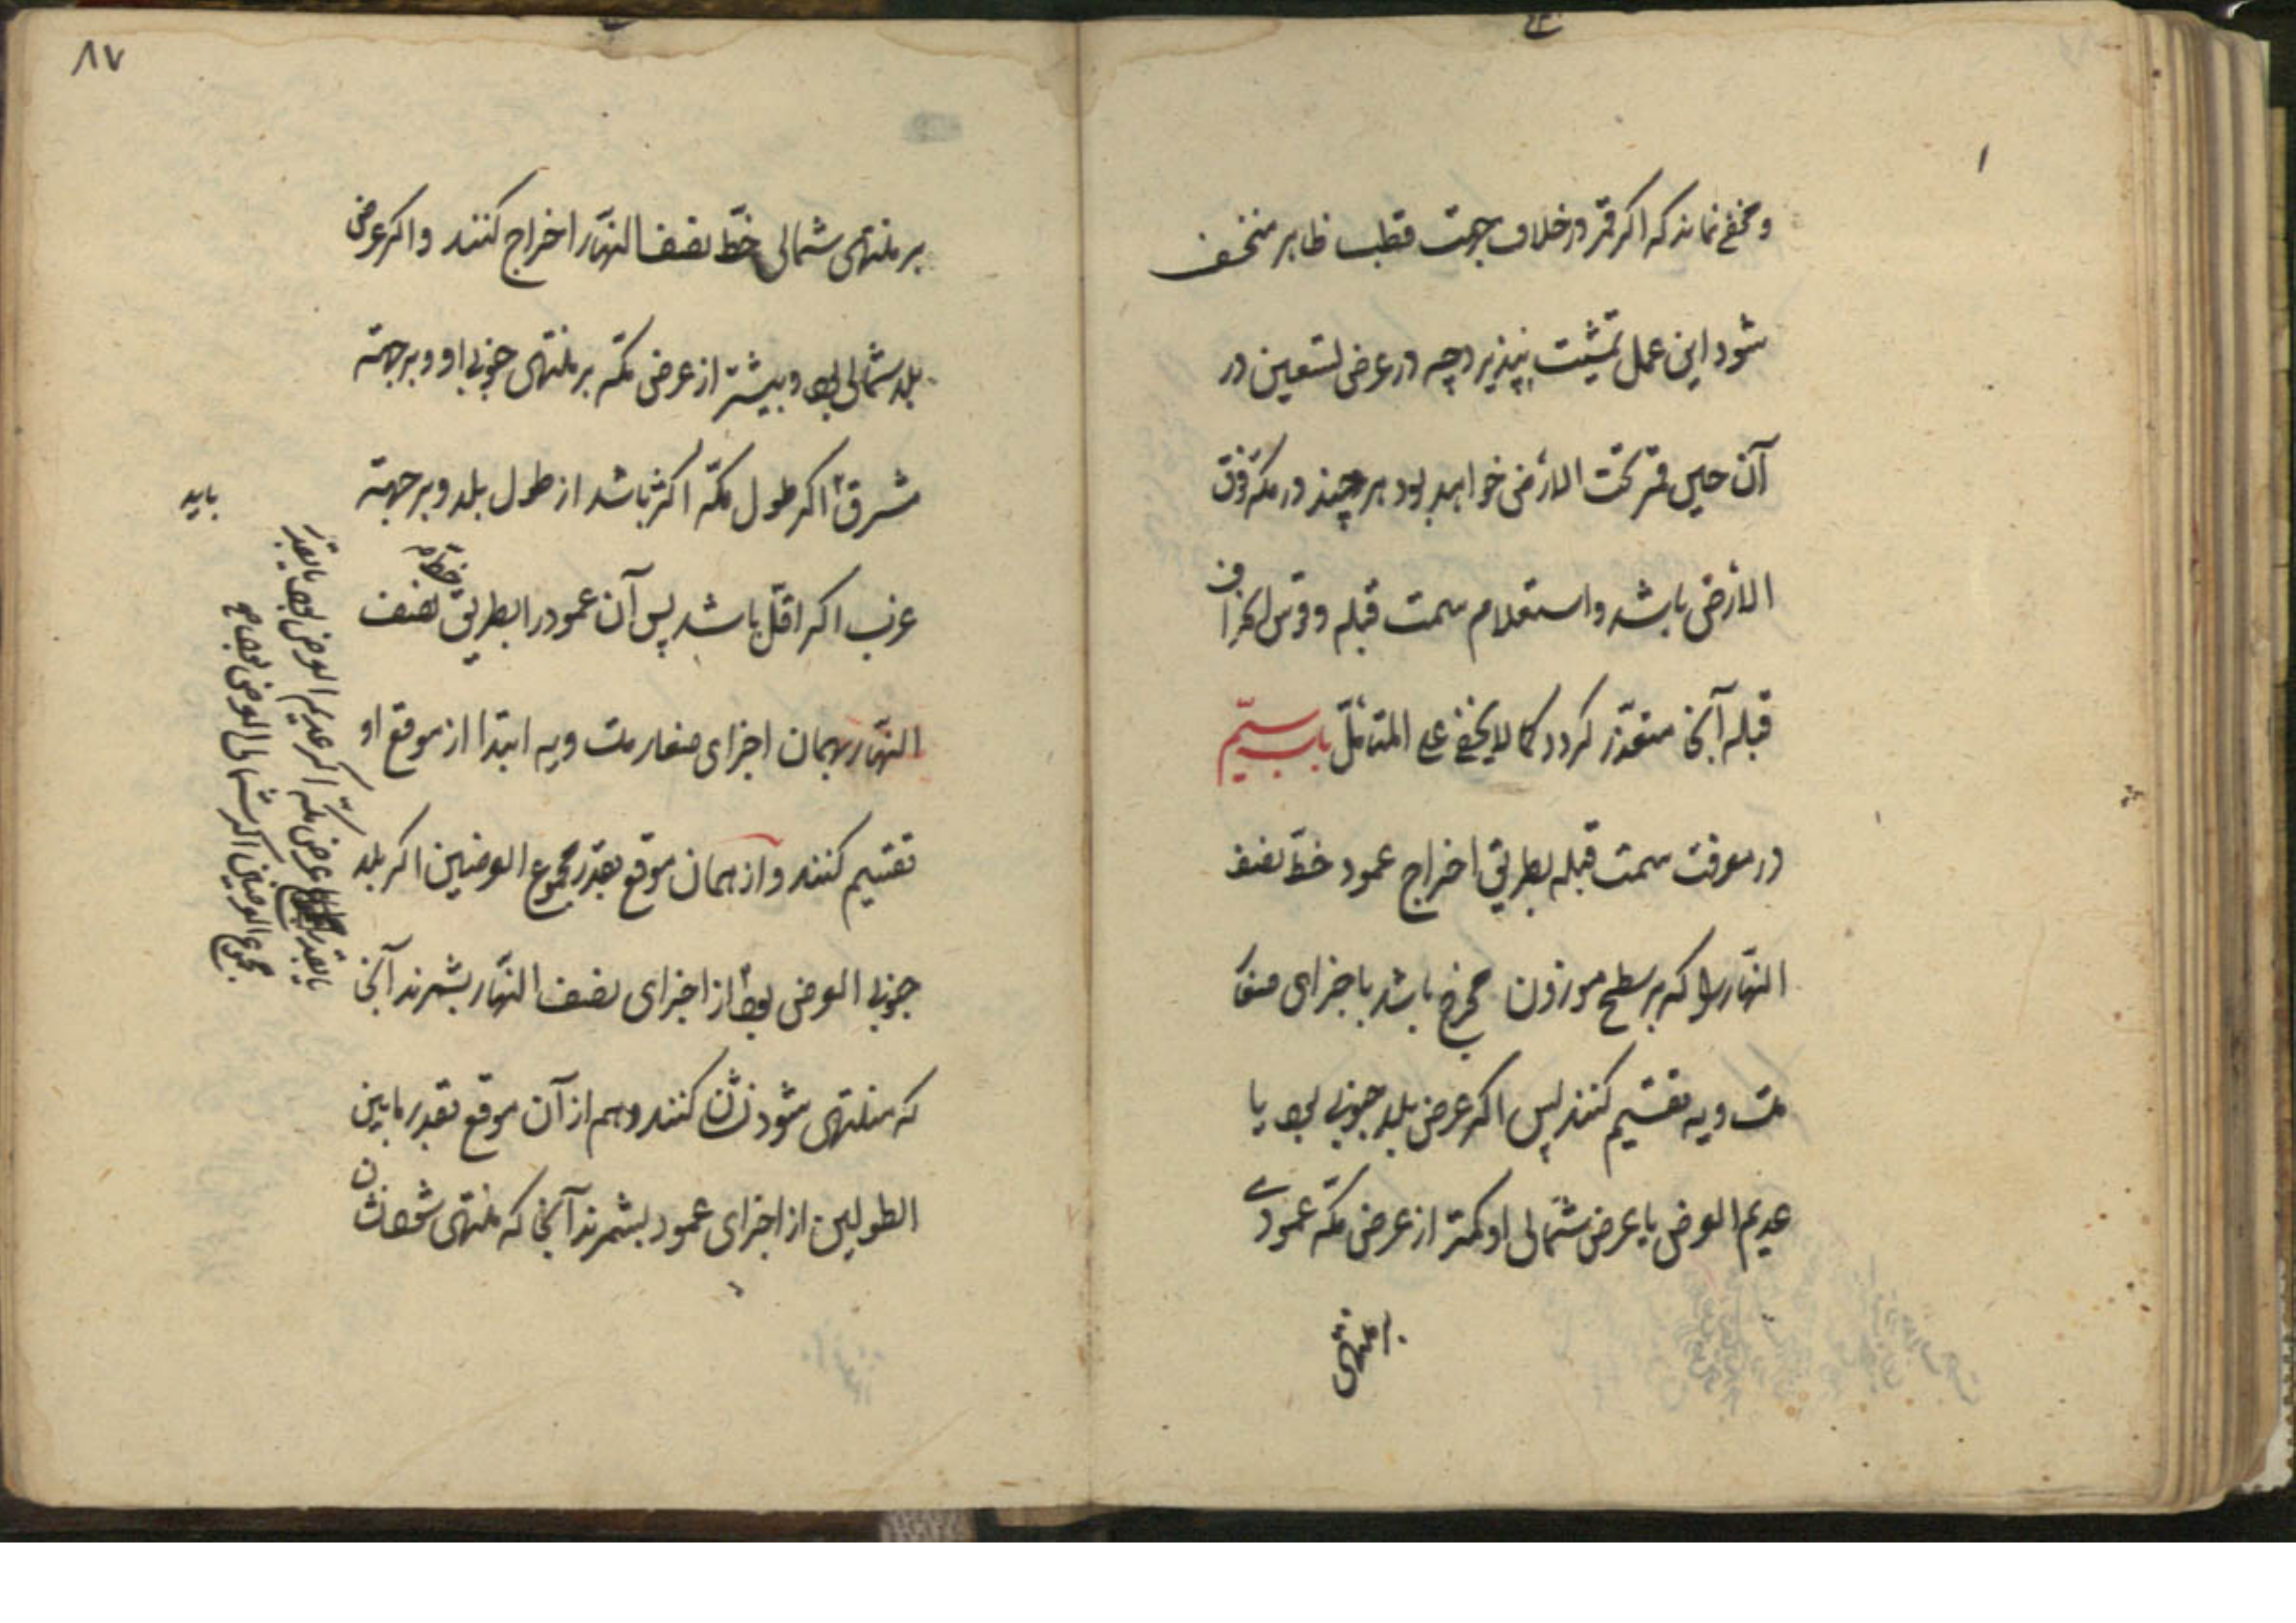 و مخفی نماند که اگر قمر در خلاف جهت قطب ظاهر منخسف
شود این عمل تمشیت نپذیرد چه در عرض تسعین در
آن حین قمر تحت الارض خواهد بود هر چند در مکه فوق
الارض باشد و استعلام سمت قبله و قوس انحراف
قبله آنجا متعذر گردد کما لا یخفی علی المتامّل باب سیّم
در معرفت سمت قبله بطریق اخراج عمود خطّ نصف
النهار را که بر سطح موزون مخرج باشد باجزای صغار
متساویه تقسیم کنند پس اگر عرض بلد جنوبی بود یا
عدیم العرض یا عرض شمالی او کمتر از عرض مکّه عمودی
۸۷
بر منتهی شمالی خطّ نصف النهار اخراج کنند و اگر عرض
بلد شمالی بود و بیشتر از عرض مکّه بر منتهی جنوبی او و بر جهة
شرق اگر طول مکّه اکثر باشد از طول بلد و بر جهة
غرب اگر اقلّ باشد پس آن عمود را بطریق خط نصف
النهار بهمان اجزای صغار متساویه ابتدا از موقع او
تقسیم کنند و از همان موقع بقدر مجموع العرضین اگر بلد
جنوبی العرض بود از اجزای نصف النهار بشمرند آنجا
که منتهی شود نشان کنند و هم از آن موقع بقدر مابین
الطولین از اجزای عمود بشمرند آنجا که منتهی شود نشان
یا بقدر عرض مکّه اگر عدیم العرض بود یا بقدر
مجموع العرضین اگر شمالی العرض بود